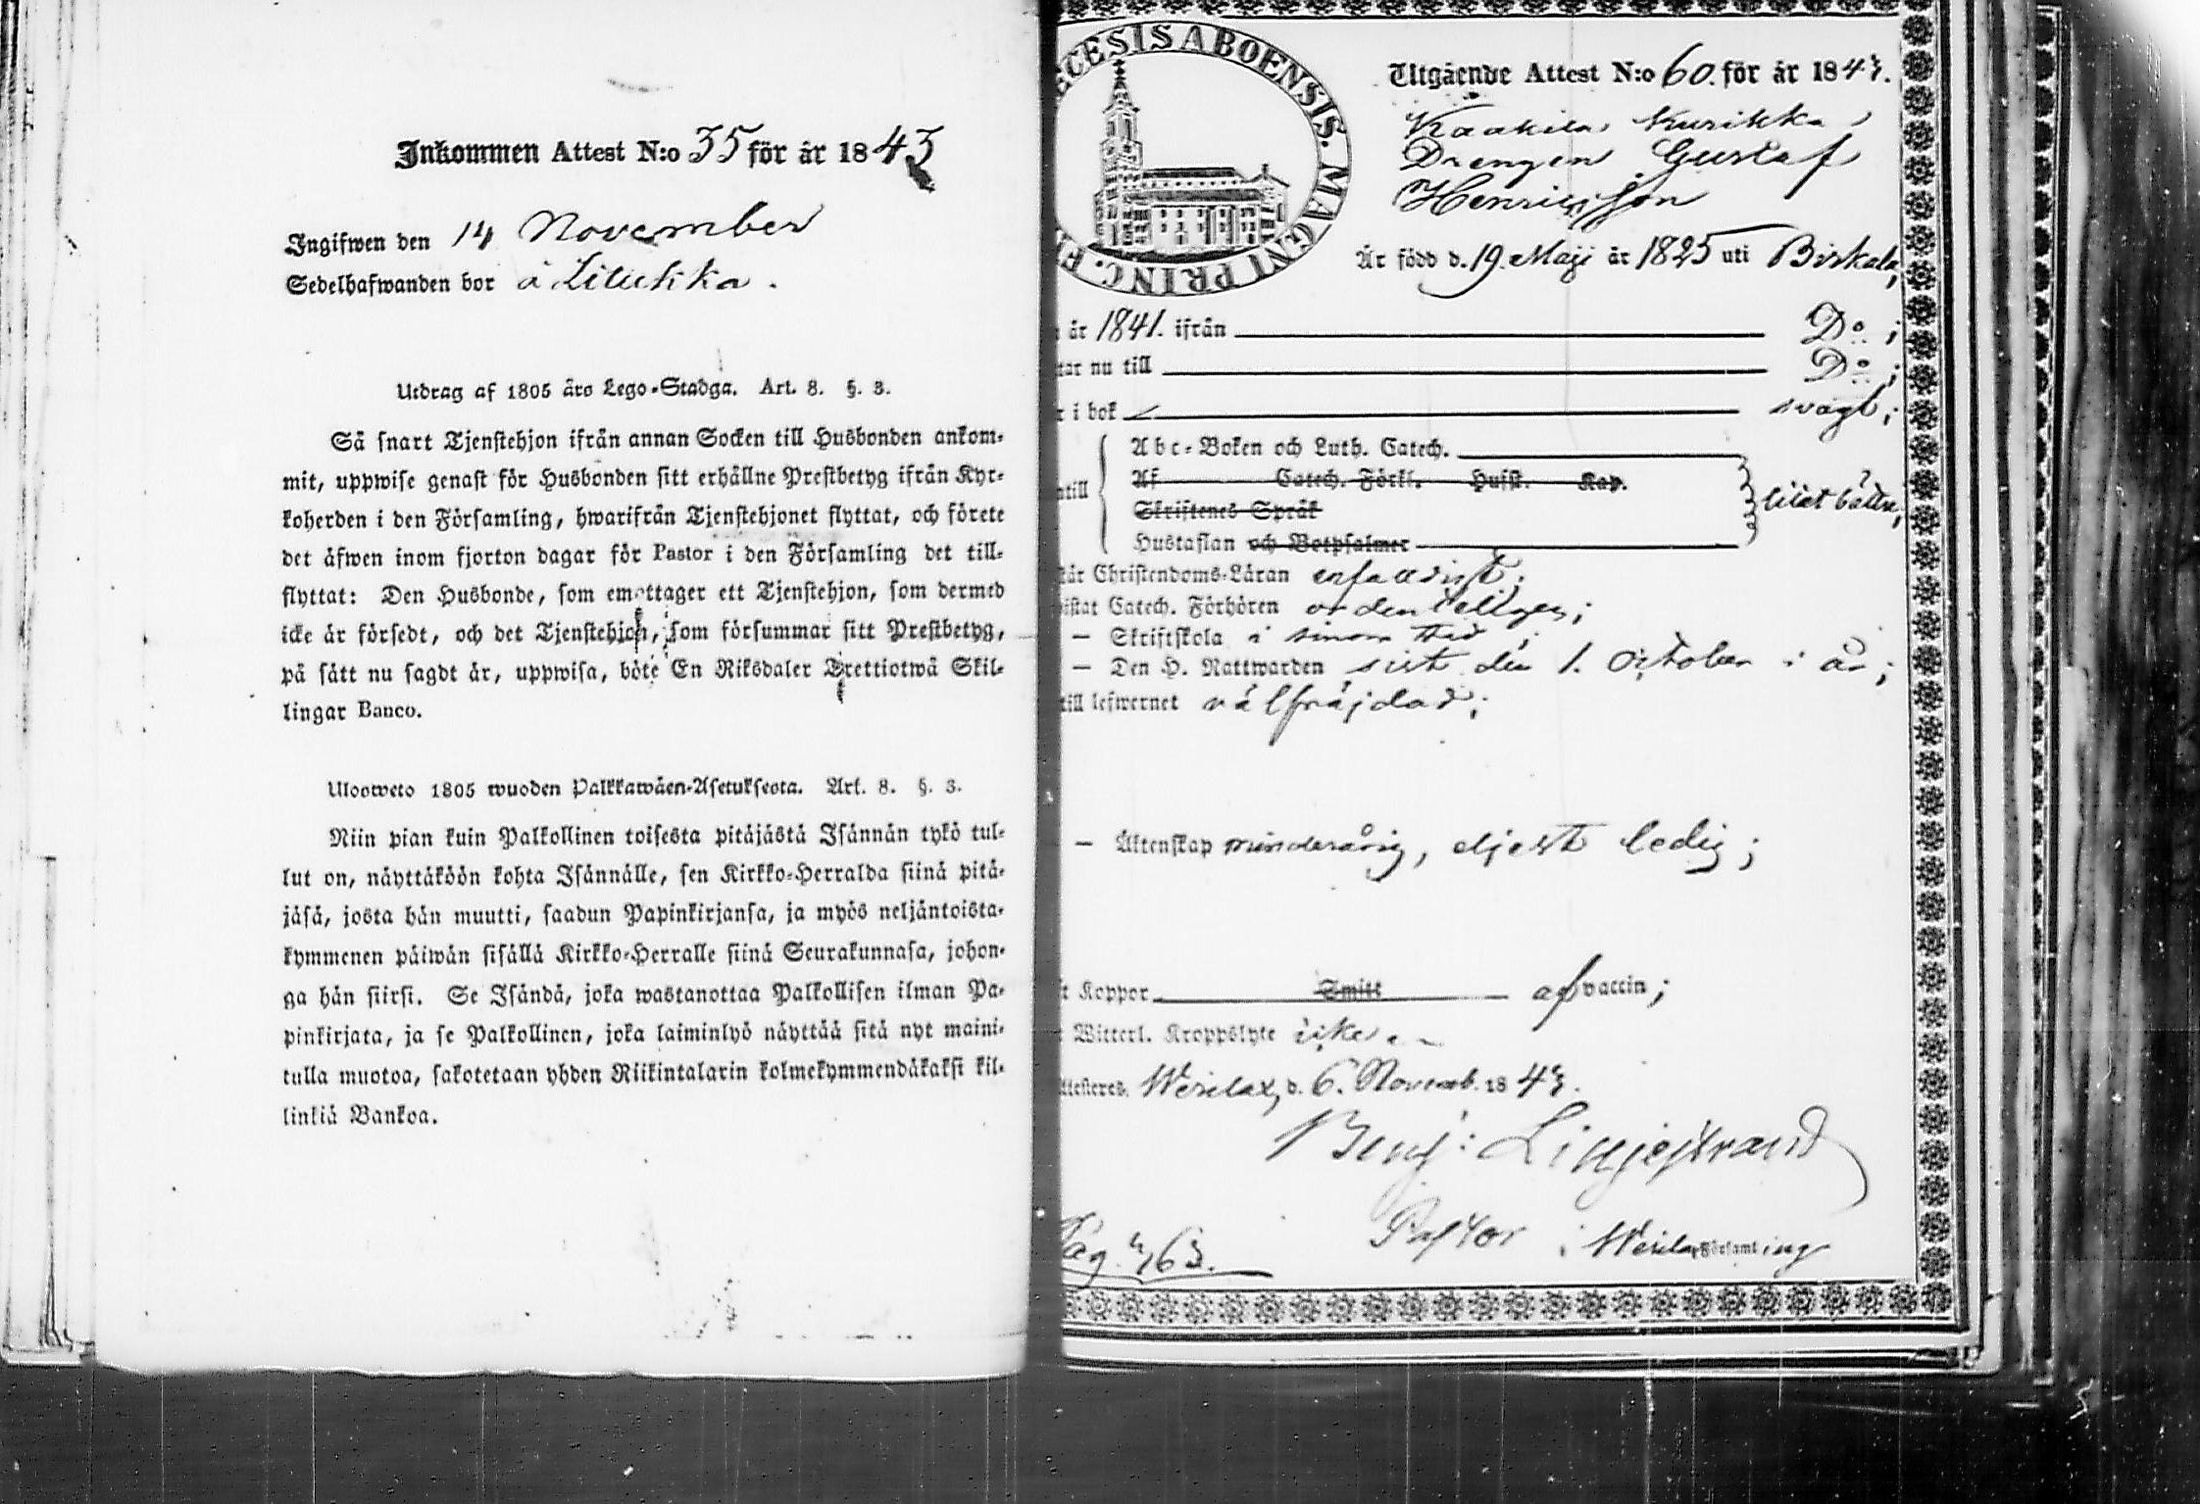 Inkommen Attest N:o 35 för år 1843
Ingifwen den 14 November
Sedelhafwanden bor å Liukka.
Utdrag af 1805 års Lego-Stadga. Art. 8. §. 3.
Så snart Tjenstehjon ifrån annan Socken till Husbonden ankom-
mit, uppwise genast för Husbonden sitt erhållne Prestbetyg ifrån Kyr-
koherden i den Församling, hwarifrån Tjenstehjonet flyttat, och förete
det äfwen inom fjorton dagar för Pastor i den Församling det till-
flyttat: Den Husbonde, som emottager ett Tjenstehjon, som dermed
icke är försedt, och det Tjenstehjon, som försummar sitt Prestbetyg,
på sätt nu sagdt är, uppwisa, böte En Riksdaler Trettiotwå Skil-
lingar Banco.
Uloosweto 1805 wuoden Palkkawäen-Asetuksesta. Art. 8. §. 3.
Niin pian kuin Palkollinen toisesta pitäjästä Isännän tykö tul-
lut on, näyttäköön kohta Isännälle, sen Kirkko-Herralda siinä pitä-
jäsä, josta hän muutti, saadun Papinkirjansa, ja myös neljäntoista-
kymmenen päiwän sisällä Kirkko-Herralle siinä Seurakunnasa, johon-
ga hän siirsi. Se Isändä, joka wastanottaa Palkollisen ilman Pa-
pinkirjata, ja se Palkollinen, joka laiminlyö näyttää sitä nyt maini-
tulla muotoa, sakotetaan yhden Riikintalarin kolmekymmendäkaksi kil-
linkiä Bankoa.
ECESIS ABOENSIS. MAGNI PRINC. F
Utgående Attest N:o 60. för år 1843.
Kaakila Kurikka
Drengen Gustaf
Henricsson
Är född d. 19. Maji år 1825 uti Birkala,
år 1841. ifrån D:o;
tar nu till D:o;
r i bok svagt;
Abc-Boken och Luth. Catech.
Af Catech. Förkl. Husst. Kap.
ntill
Skriftenes Språk
litet bättre,
Hustaflan och Botpsalmer
tår Christendoms-Läran enfaldigt;
istat Catech. Förhören ordenteligen;
— Skriftskola i sinom tid;
— Den H. Nattwarden sist den 1. October i år;
till lefwernet välfräjdad;
— Äktenskap minderårig, eljest ledig;
t Koppor Smitt af vaccin;
t Witterl. Kroppslyte icke.
ttesteres. Wesilax, d. 6. Novemb. 1843.
Benj: Liljestrand
Pastor i Wesilax Församling
Pag. 463.